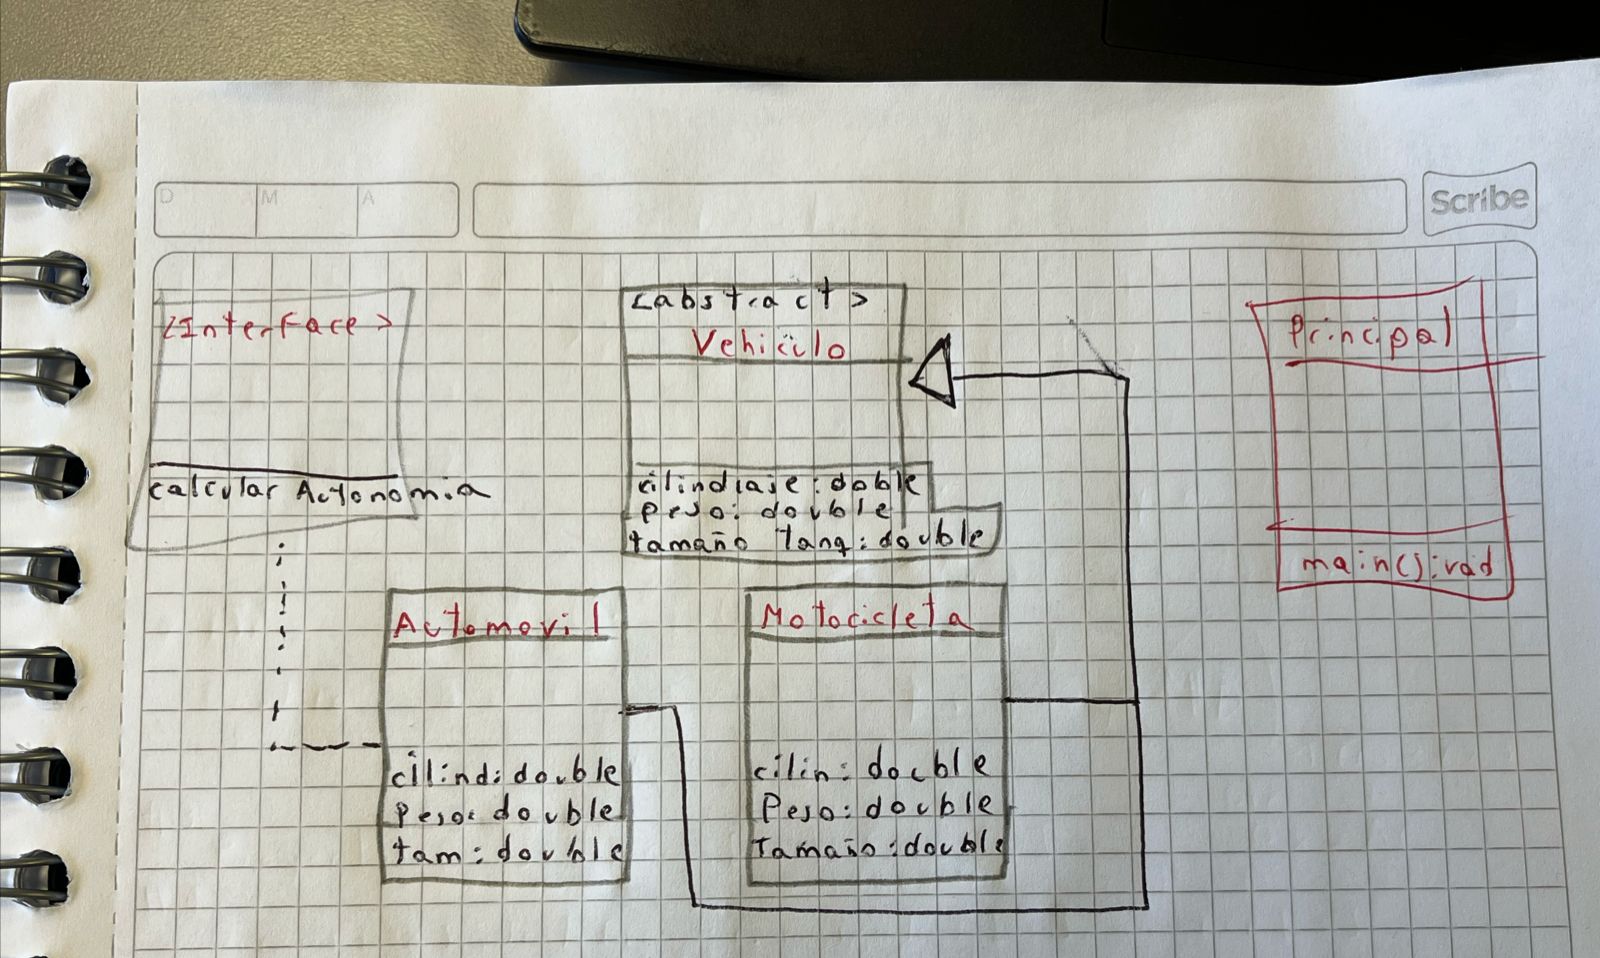 D M A
Scribe
<Interface>
calcular Autonomia
<abstract>
Vehiculo
cilindraje: doble
peso: double
tamaño Tanq: double
Principal
main(): void
Automovil
cilind: double
Peso: double
tam: double
Motocicleta
cilin: double
Peso: double
Tamaño: double